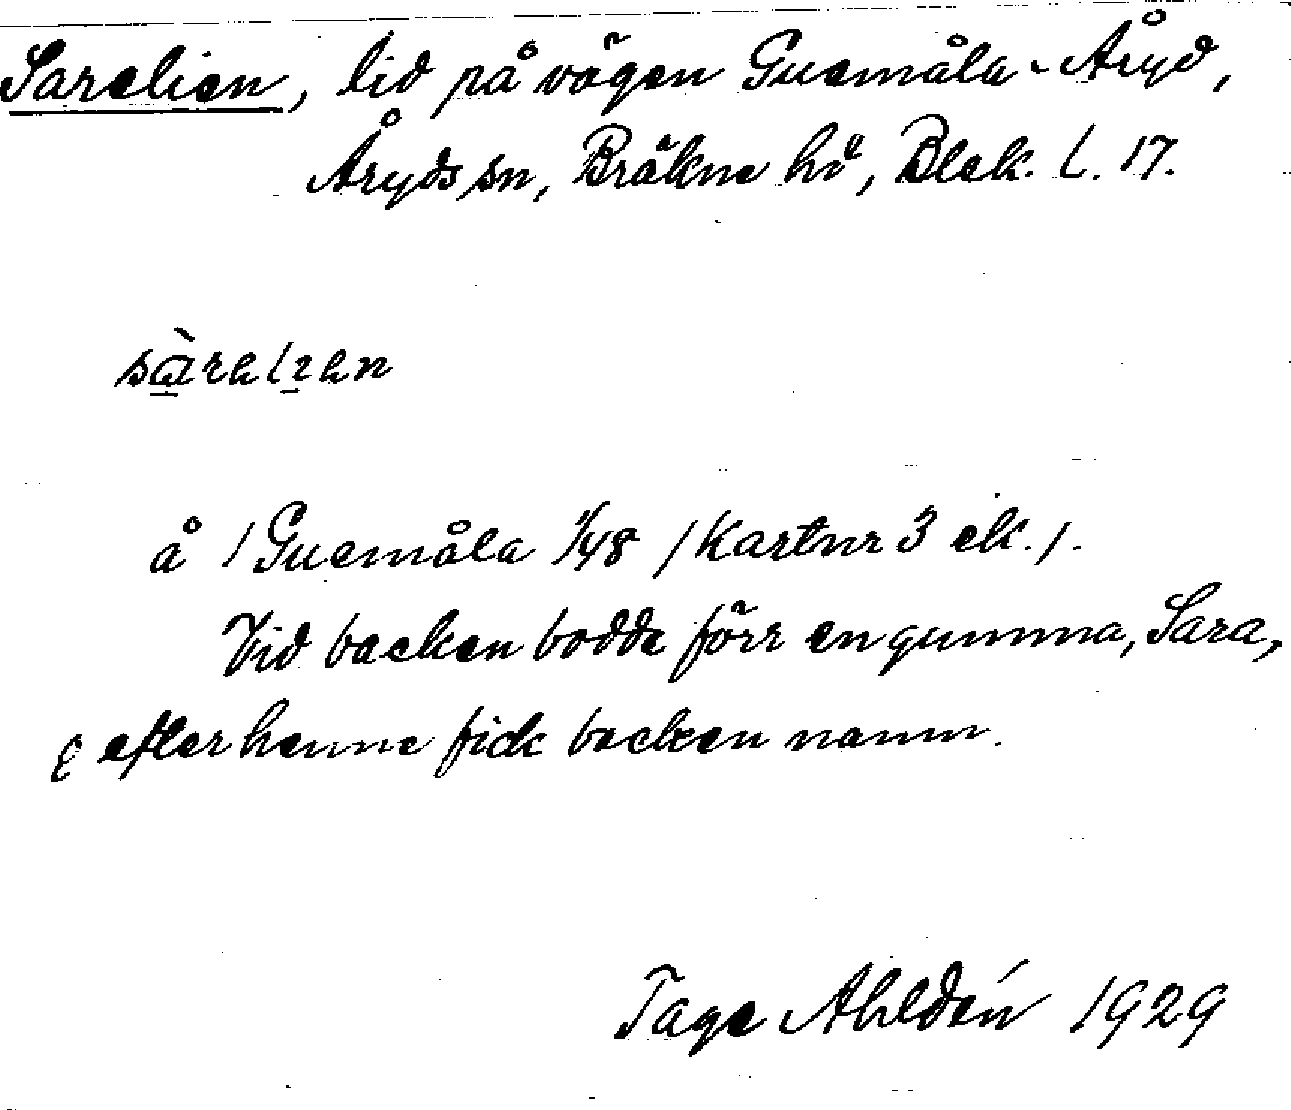 Sarelien, lid på vägen Guemåla-Åryd,
Åryds sn, Bräkne hd, Blek. l. 17.
sàrelien
å /Guemåla 1/48 /Kartnr 3 ek./.
Vid backen bodde förr en gumma, Sara,
o efter henne fick backen namn.
Tage Ahldén 1929